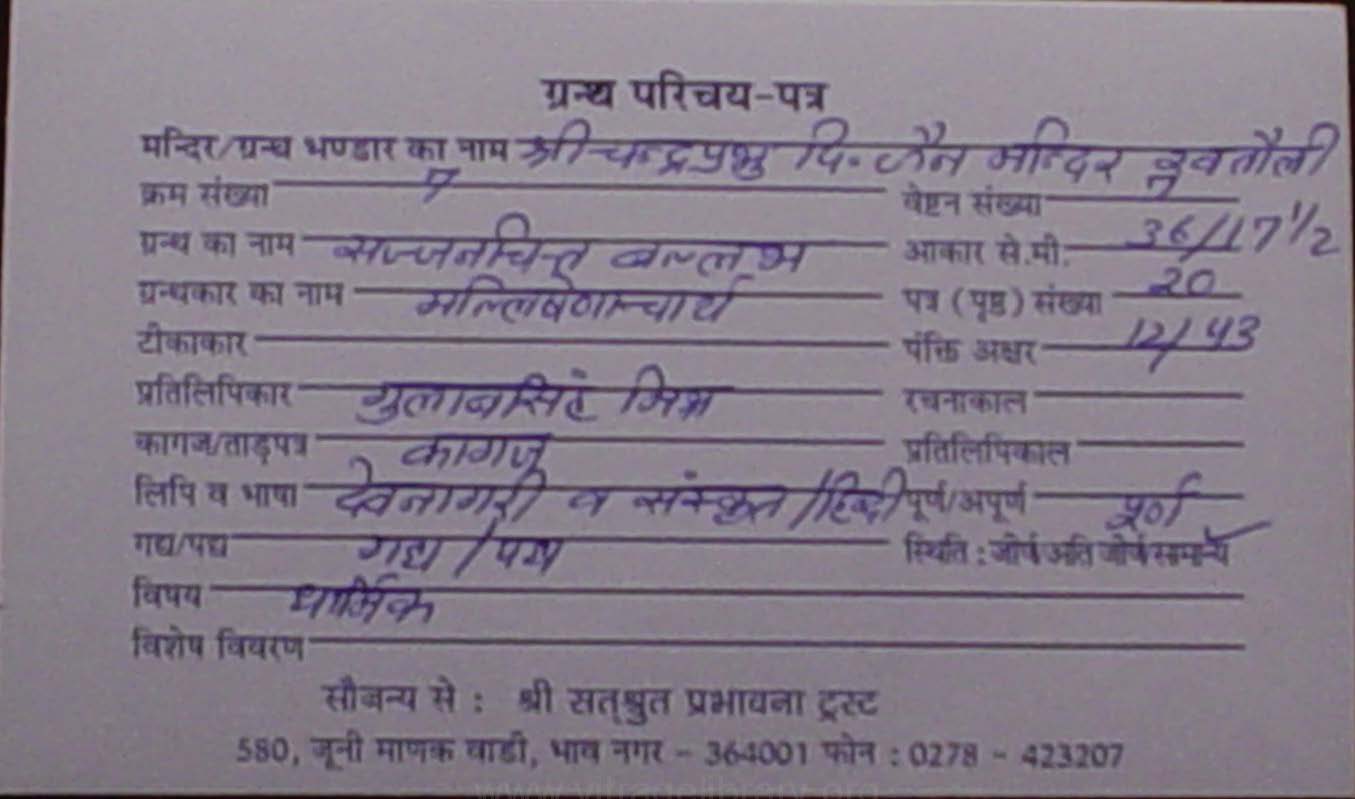 ग्रन्थ परिचय-पत्र
मन्दिर/ग्रन्थ भण्डार का नाम श्री चन्द्रप्रभु दि. जैन मन्दिर
क्रम संख्या वेष्टन संख्या
ग्रन्थ का नाम सज्जनचित्त बल्लभ आकार से.मी. 36/17 1/2
ग्रन्थकार का नाम मल्लिषेणाचार्य पत्र (पृष्ठ) संख्या 20
टीकाकार पंक्ति अक्षर 12/43
प्रतिलिपिकार गुलाबसिहं मिश्र रचनाकाल
कागज/ताड़पत्र कागज प्रतिलिपिकाल
लिपि व भाषा देवनागरी व संस्कृत/हिन्दी पूर्ण/अपूर्ण पूर्ण
गद्य/पद्य गद्य/पद्य स्थिति : जीर्ण अति जीर्ण सामान्य
विषय धार्मिक
विशेष विवरण
सौजन्य से : श्री सत्श्रुत प्रभावना ट्रस्ट
580, जूनी माणक वाडी, भाव नगर - 364001 फोन : 0278 - 423207